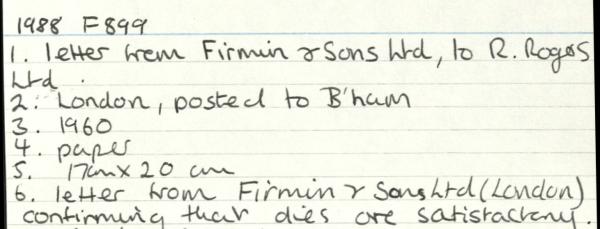 1988 F899
1. letter from Firmin & Sons Ltd, to R. Rogers
Ltd.
2. London, posted to B'ham
3. 1960
4. paper
5. 17cm x 20 cm
6. letter from Firmin & Sons Ltd (London)
confirming that dies are satisfactory.